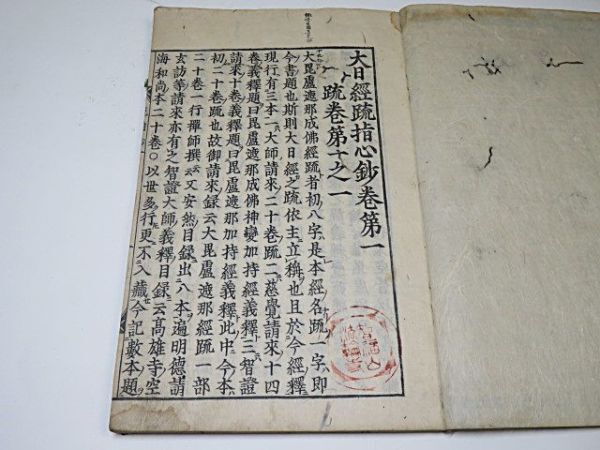 大日經疏指心鈔卷第一
疏卷第十之一
大毘盧遮那成佛經疏者初八字是本經名疏一字即
今書題也斯則大日經之疏依主立稱也且於今經釋
現行有三本一大師請來二十卷疏二慈覺請來十四
卷義釋題曰毘盧遮那成佛神變加持經義釋三智證
請來十卷義釋題曰毘盧遮那加持經義釋此中今本
初二十卷疏也故御請來錄云大毘盧遮那經疏一部
二十卷一行禪師撰云又安然目錄出八本遍明德請
玄訪等請來亦有之智證大師義釋目錄云高雄寺空
海和尚本二十卷○以世多行更不入藏今記數本題